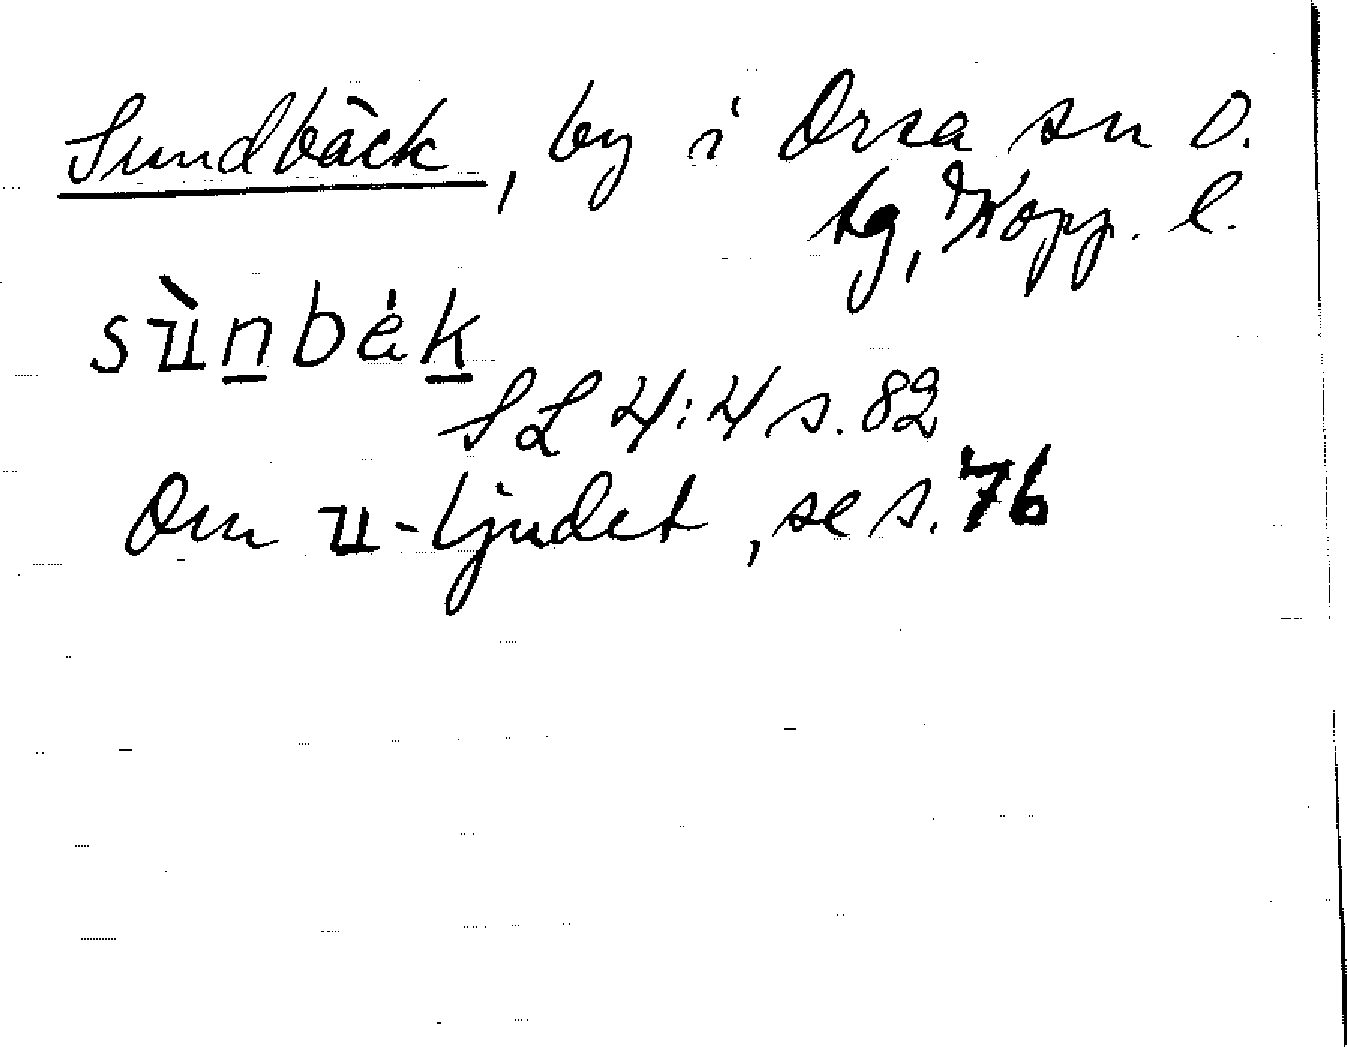 Sundbäck, by i Orsa sn O.
tg, Kopp. l.
sùnbék
SL 4:4 s. 82
Om u-ljudet, se s. 76